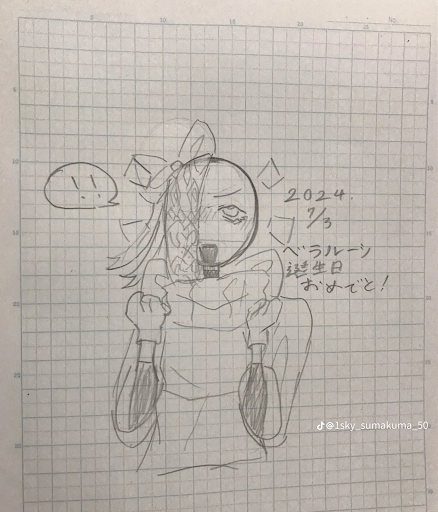 No.
!!
2024.
7/3
ベラルーシ
誕生日
おめでと!
@1sky_sumakuma_50